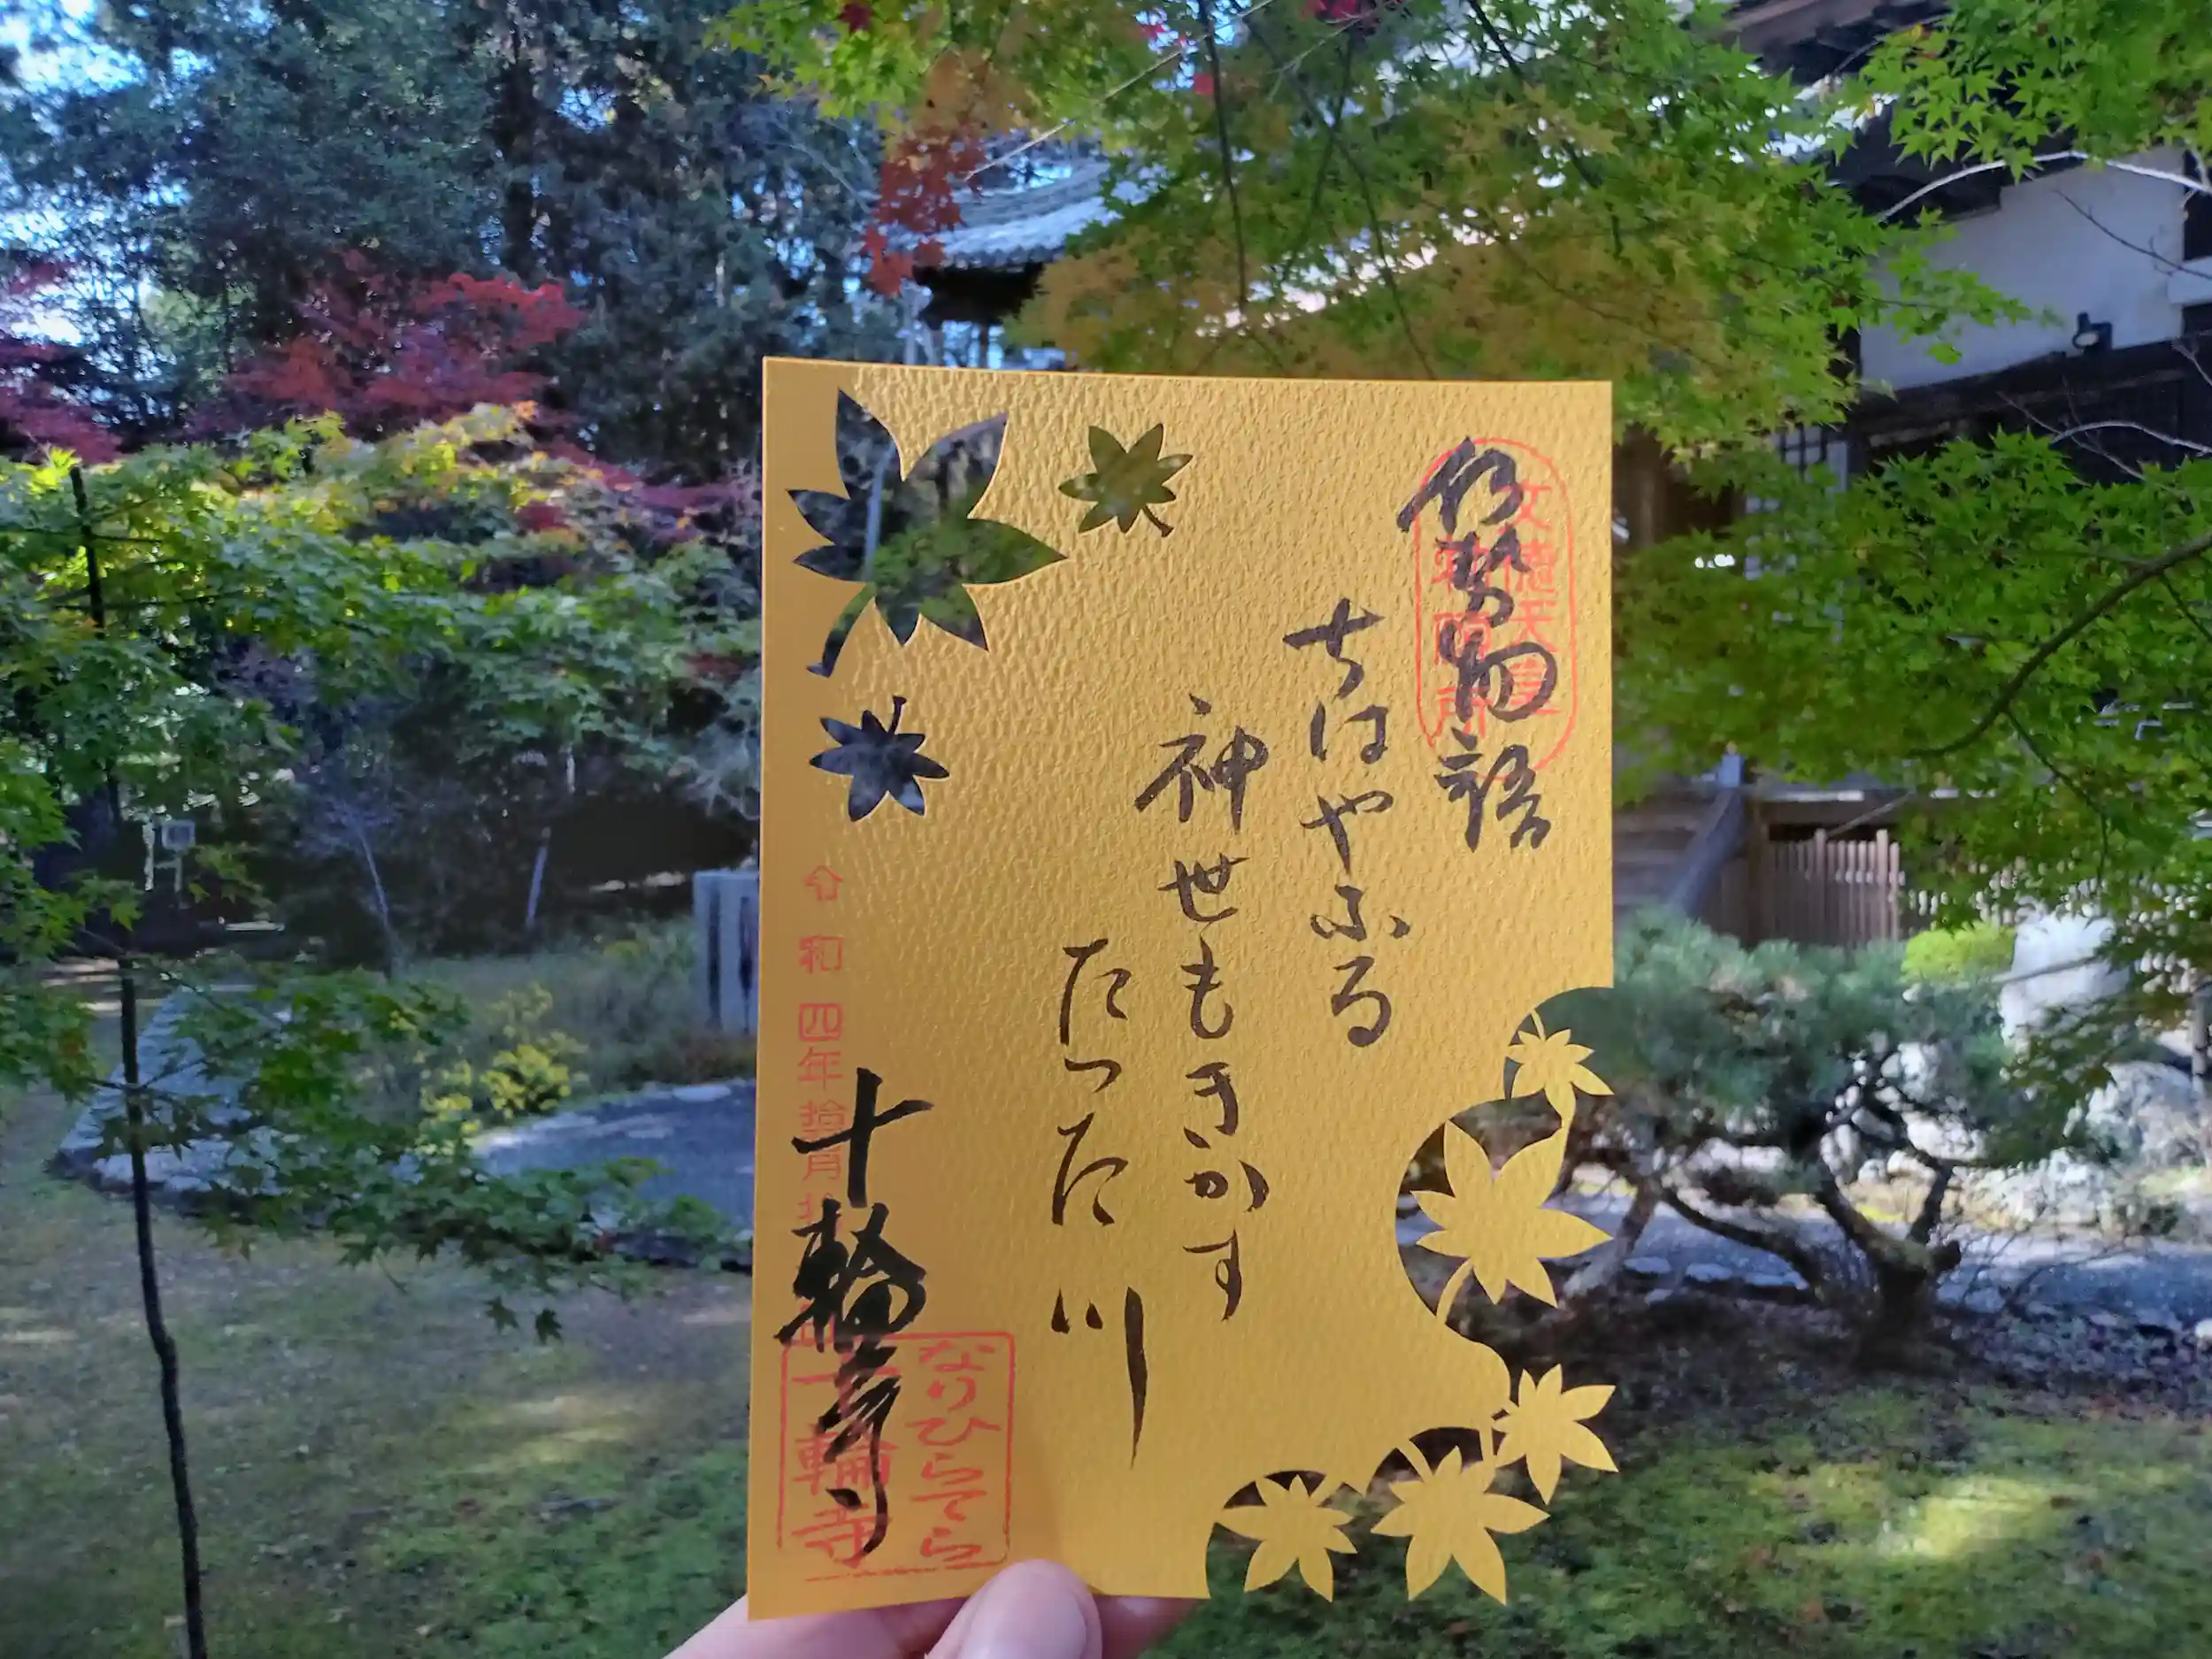 伊勢物語
文徳天皇
勅願所
ちはやふる
神世もきかす
たつた川
令和四年拾一月拾
十輪寺
なりひらてら
十輪寺